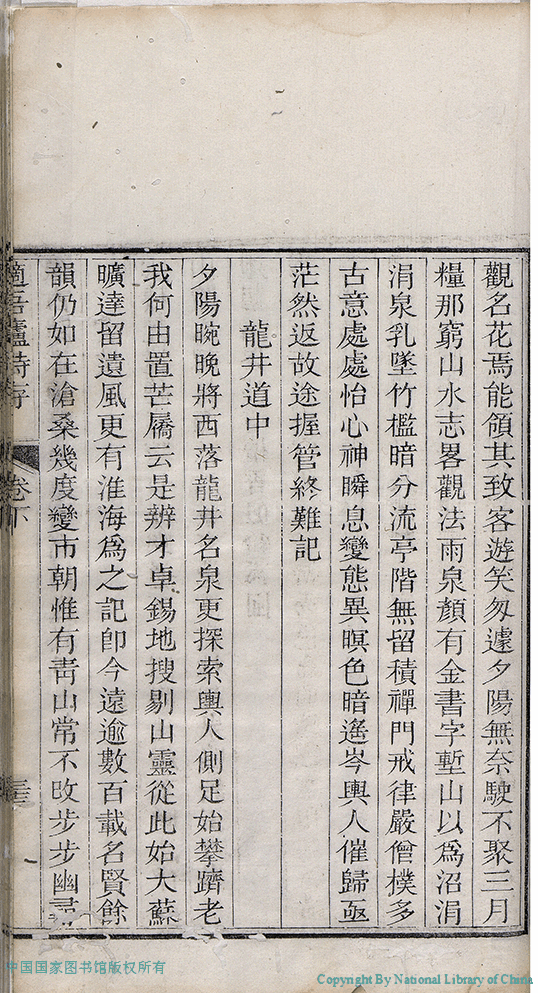 觀名花焉能領其致客遊笑匆遽夕陽無奈駛不聚三月
糧那窮山水志畧觀法雨泉顏有金書字塹山以爲沼涓
涓泉乳墜竹檻暗分流亭階無留積禪門戒律嚴僧樸多
古意處處怡心神瞬息變態異暝色暗遙岑輿人催歸亟
茫然返故途握管終難記
龍井道中
夕陽晼晚將西落龍井名泉更探索輿人側足始攀躋老
我何由置芒屩云是辨才卓錫地搜剔山靈從此始大蘇
曠達留遺風更有淮海爲之記卽今遠逾數百載名賢餘
韻仍如在滄桑幾度變市朝惟有靑山常不改步步幽尋
適吾廬詩存
卷下
三
中国国家图书馆版权所有
Copyright By National Library of China